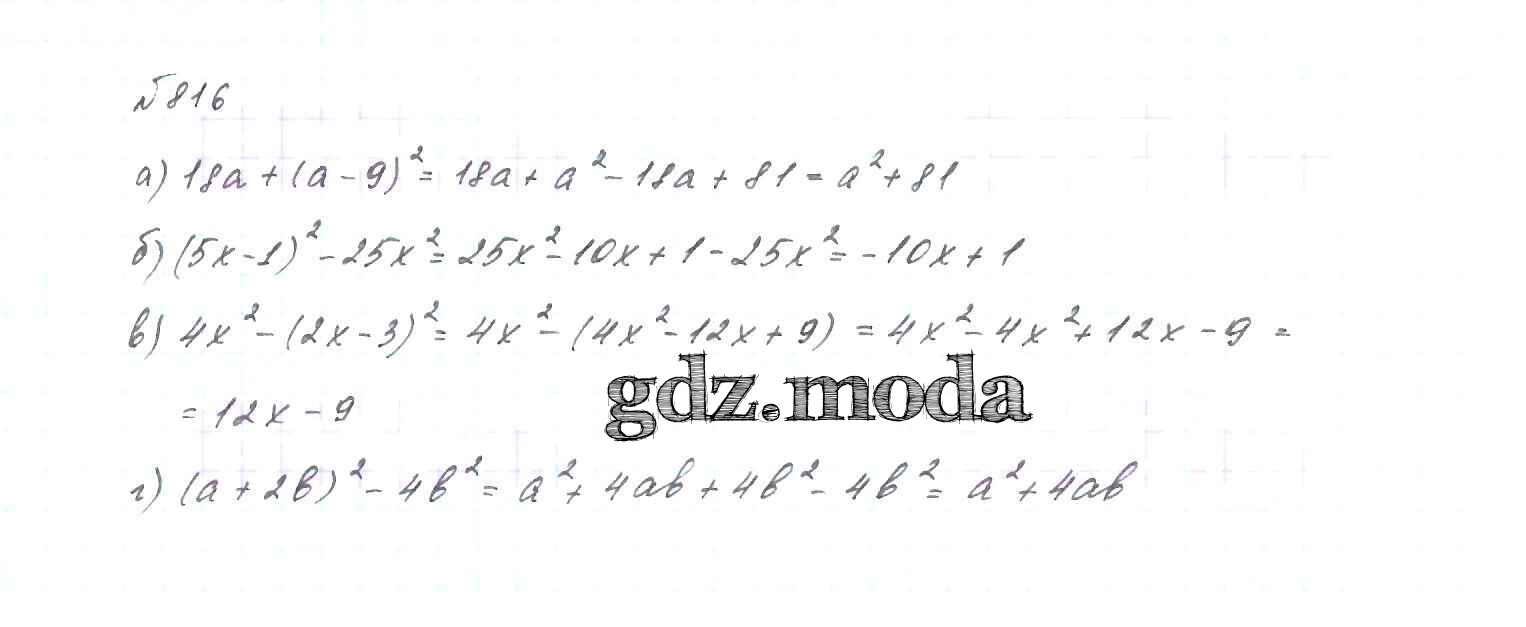 №816
а) 18a + (a - 9)² = 18a + a² - 18a + 81 = a² + 81
б) (5x - 1)² - 25x² = 25x² - 10x + 1 - 25x² = -10x + 1
в) 4x² - (2x - 3)² = 4x² - (4x² - 12x + 9) = 4x² - 4x² + 12x - 9 =
= 12x - 9
gdz.moda
г) (a + 2b)² - 4b² = a² + 4ab + 4b² - 4b² = a² + 4ab